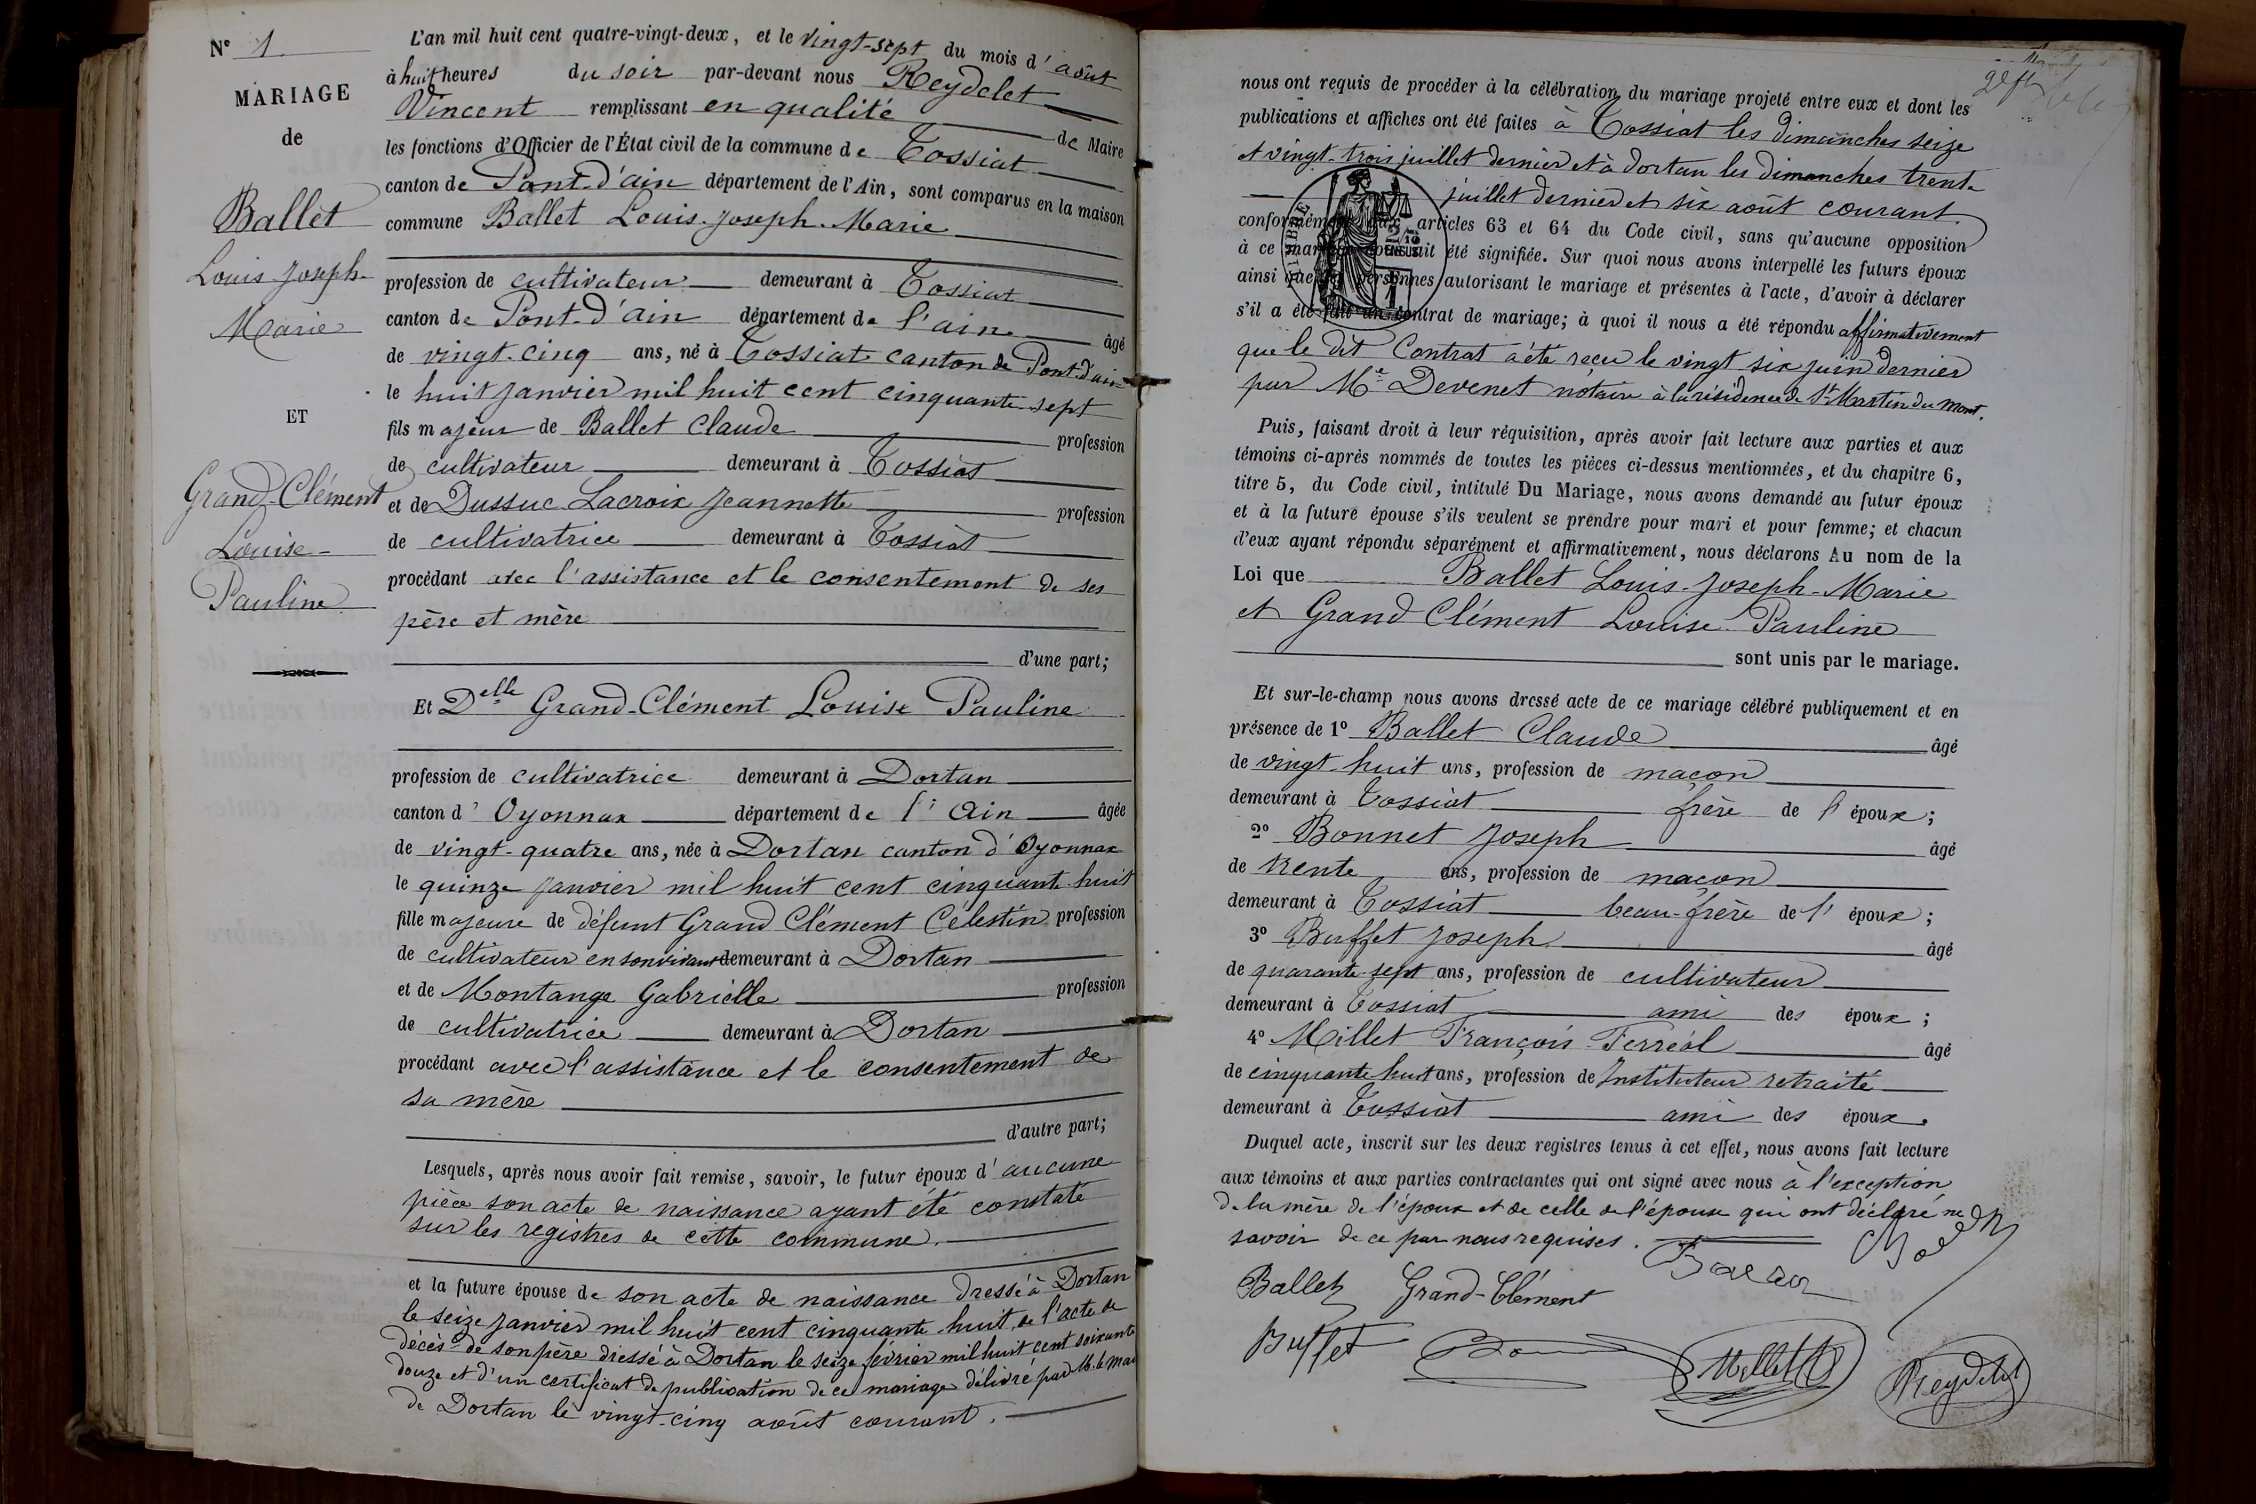 N° 1
MARIAGE
de
Ballet
Louis Joseph-
Marie
ET
Grand-Clément
Louise-
Pauline
L'an mil huit cent quatre-vingt-deux, et le vingt-sept du mois d'août
à huit heures du soir par-devant nous Reydelet
Vincent remplissant en qualité de Maire
les fonctions d'Officier de l'État civil de la commune de Tossiat
canton de Pont-d'ain département de l'Ain, sont comparus en la maison
commune Ballet Louis-Joseph-Marie
profession de cultivateur demeurant à Tossiat
canton de Pont-d'ain département de l'ain âgé
de vingt-cinq ans, né à Tossiat canton de Pont-d'ain
le huit janvier mil huit cent cinquante-sept
fils majeur de Ballet Claude profession
de cultivateur demeurant à Tossiat
et de Dussuc Lacroix Jeannette profession
de cultivatrice demeurant à Tossiat
procédant avec l'assistance et le consentement de ses
père et mère
d'une part;
Et Delle Grand-Clément Louise Pauline
profession de cultivatrice demeurant à Dortan
canton d'Oyonnax département de l'Ain âgée
de vingt-quatre ans, née à Dortan canton d'Oyonnax
le quinze janvier mil huit cent cinquante-huit
fille majeure de défunt Grand Clément Célestin profession
de cultivateur en son vivant demeurant à Dortan
et de Montange Gabrielle profession
de cultivatrice demeurant à Dortan
procédant avec l'assistance et le consentement de
sa mère
d'autre part;
Lesquels, après nous avoir fait remise, savoir, le futur époux d'aucune
pièce son acte de naissance ayant été constaté
sur les registres de cette commune.
et la future épouse de son acte de naissance dressé à Dortan
le seize janvier mil huit cent cinquante-huit, de l'acte de
décès de son père dressé à Dortan le seize février mil huit cent soixante
douze et d'un certificat de publication de ce mariage délivré par M. le Maire
de Dortan le vingt-cinq août courant.
nous ont requis de procéder à la célébration du mariage projeté entre eux et dont les
publications et affiches ont été faites à Tossiat les dimanches seize
et vingt-trois juillet dernier et à Dortan les dimanches trente
juillet dernier et six août courant.
conformément aux articles 63 et 64 du Code civil, sans qu'aucune opposition
à ce mariage nous ait été signifiée. Sur quoi nous avons interpellé les futurs époux
ainsi que les personnes autorisant le mariage et présentes à l'acte, d'avoir à déclarer
s'il a été fait un contrat de mariage; à quoi il nous a été répondu affirmativement
que le dit Contrat a été reçu le vingt six juin dernier
par Me Devenet notaire à la résidence de St Martin du Mont.
Puis, faisant droit à leur réquisition, après avoir fait lecture aux parties et aux
témoins ci-après nommés de toutes les pièces ci-dessus mentionnées, et du chapitre 6,
titre 5, du Code civil, intitulé Du Mariage, nous avons demandé au futur époux
et à la future épouse s'ils veulent se prendre pour mari et pour femme; et chacun
d'eux ayant répondu séparément et affirmativement, nous déclarons Au nom de la
Loi que Ballet Louis-Joseph-Marie
et Grand Clément Louise Pauline
sont unis par le mariage.
Et sur-le-champ nous avons dressé acte de ce mariage célébré publiquement et en
présence de 1° Ballet Claude âgé
de vingt huit ans, profession de maçon
demeurant à Tossiat frère de l'époux;
2° Bonnet Joseph âgé
de trente ans, profession de maçon
demeurant à Tossiat beau-frère de l'époux;
3° Buffet Joseph âgé
de quarante-sept ans, profession de cultivateur
demeurant à Tossiat ami des époux;
4° Millet François Ferréol âgé
de cinquante huit ans, profession de Instituteur retraité
demeurant à Tossiat ami des époux.
Duquel acte, inscrit sur les deux registres tenus à cet effet, nous avons fait lecture
aux témoins et aux parties contractantes qui ont signé avec nous à l'exception
de la mère de l'époux et de celle de l'épouse qui ont déclaré ne
savoir de ce par nous requises.
Ballet Grand-Clément
Buffet Millet Reydelet